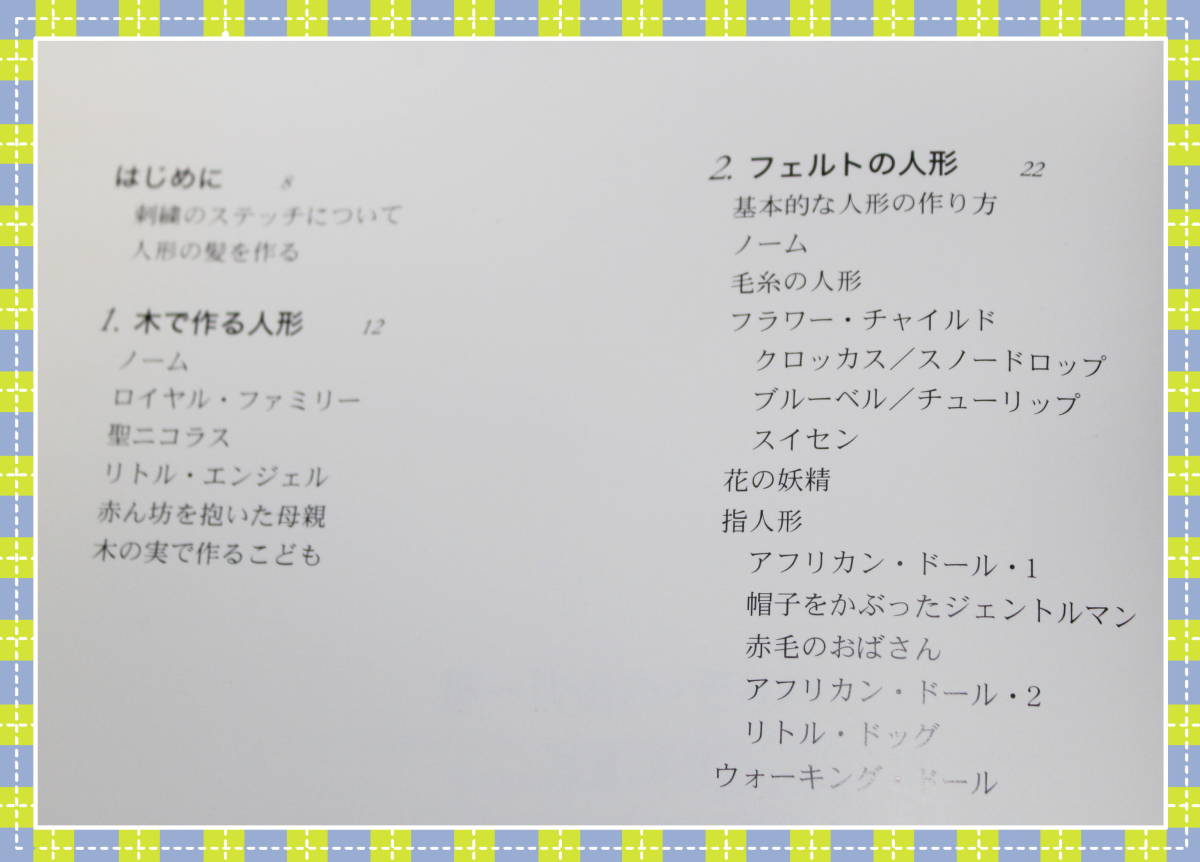 はじめに 8
刺繍のステッチについて
人形の髪を作る
1. 木で作る人形 12
ノーム
ロイヤル・ファミリー
聖ニコラス
リトル・エンジェル
赤ん坊を抱いた母親
木の実で作るこども
2. フェルトの人形 22
基本的な人形の作り方
ノーム
毛糸の人形
フラワー・チャイルド
クロッカス／スノードロップ
ブルーベル／チューリップ
スイセン
花の妖精
指人形
アフリカン・ドール・1
帽子をかぶったジェントルマン
赤毛のおばさん
アフリカン・ドール・2
リトル・ドッグ
ウォーキング・ドール